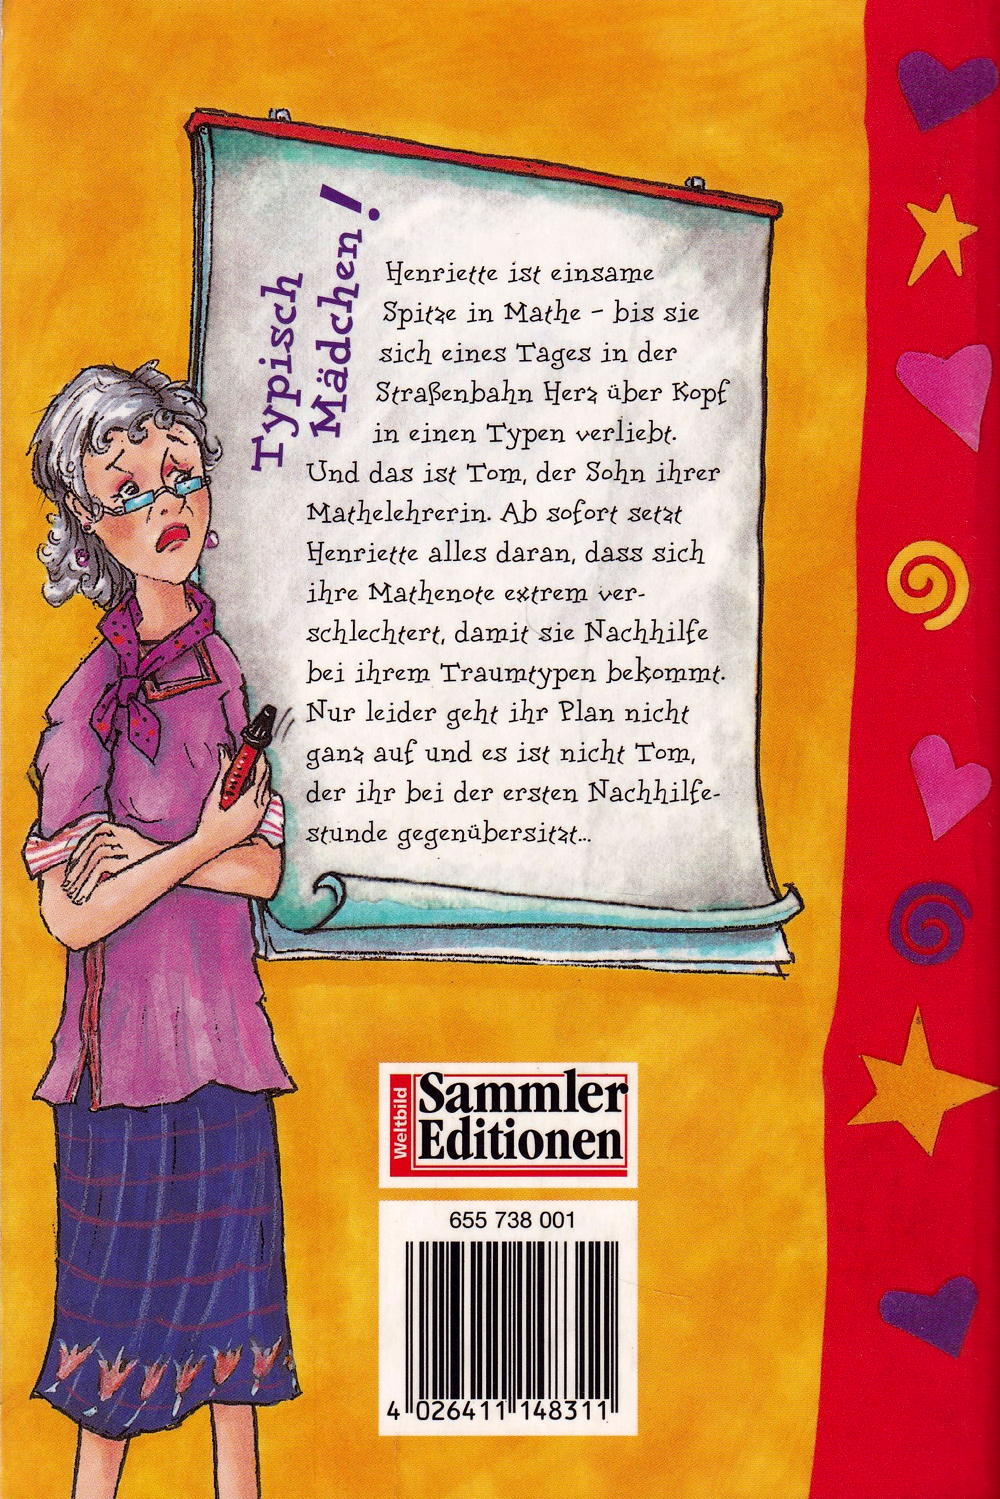 Typisch
Mädchen!
Henriette ist einsame
Spitze in Mathe – bis sie
sich eines Tages in der
Straßenbahn Herz über Kopf
in einen Typen verliebt.
Und das ist Tom, der Sohn ihrer
Mathelehrerin. Ab sofort setzt
Henriette alles daran, dass sich
ihre Mathenote extrem ver-
schlechtert, damit sie Nachhilfe
bei ihrem Traumtypen bekommt.
Nur leider geht ihr Plan nicht
ganz auf und es ist nicht Tom,
der ihr bei der ersten Nachhilfe-
stunde gegenübersitzt...
Weltbild
Sammler
Editionen
655 738 001
4 026411 148311